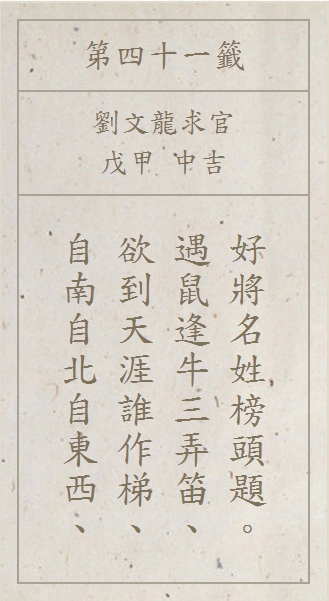 第四十一籤
劉文龍求官
戊甲 中吉
自南自北自東西、
欲到天涯誰作梯、
遇鼠逢牛三弄笛、
好將名姓榜頭題。